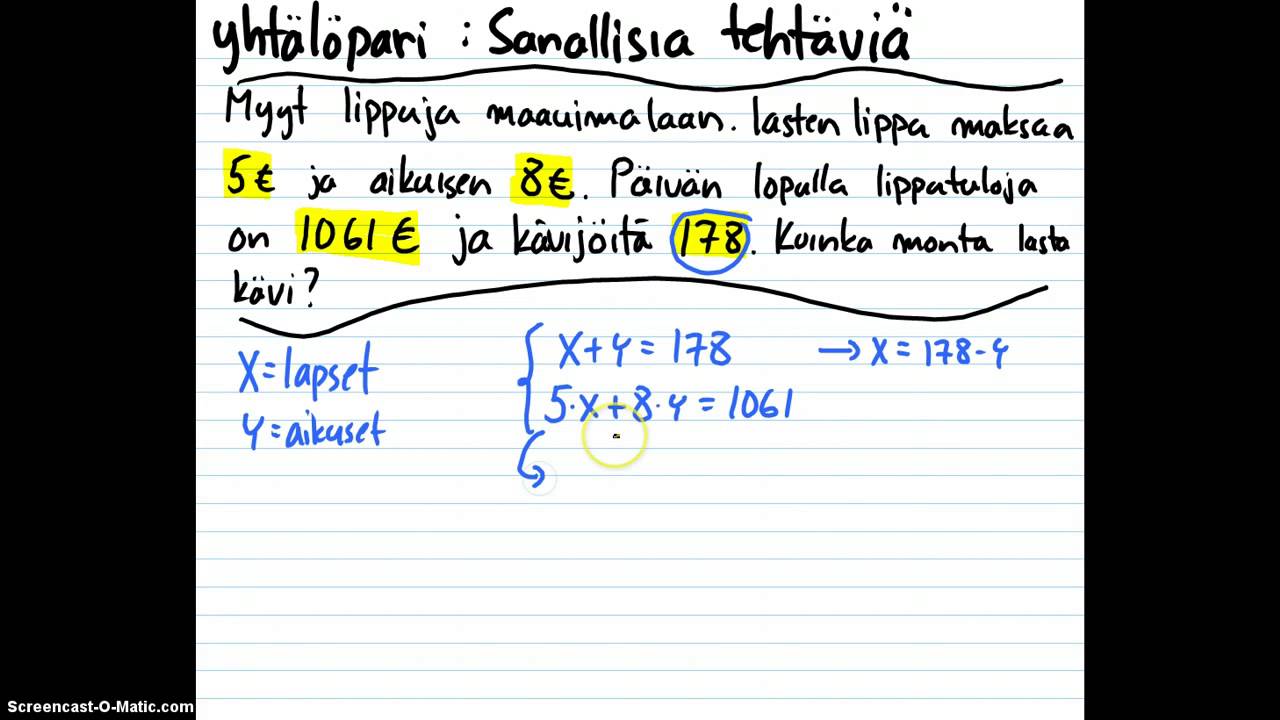 yhtälöpari : Sanallisia tehtäviä
Myyt lippuja maauimalaan. lasten lippa maksaa
5€ ja aikuisen 8€. Päivän lopulla lippatuloja
on 1061 € ja kävijöitä 178. Kuinka monta lasta
kävi?
X = lapset
y = aikuset
x + y = 178 → x = 178 - y
5·x + 8·y = 1061
Screencast-O-Matic.com